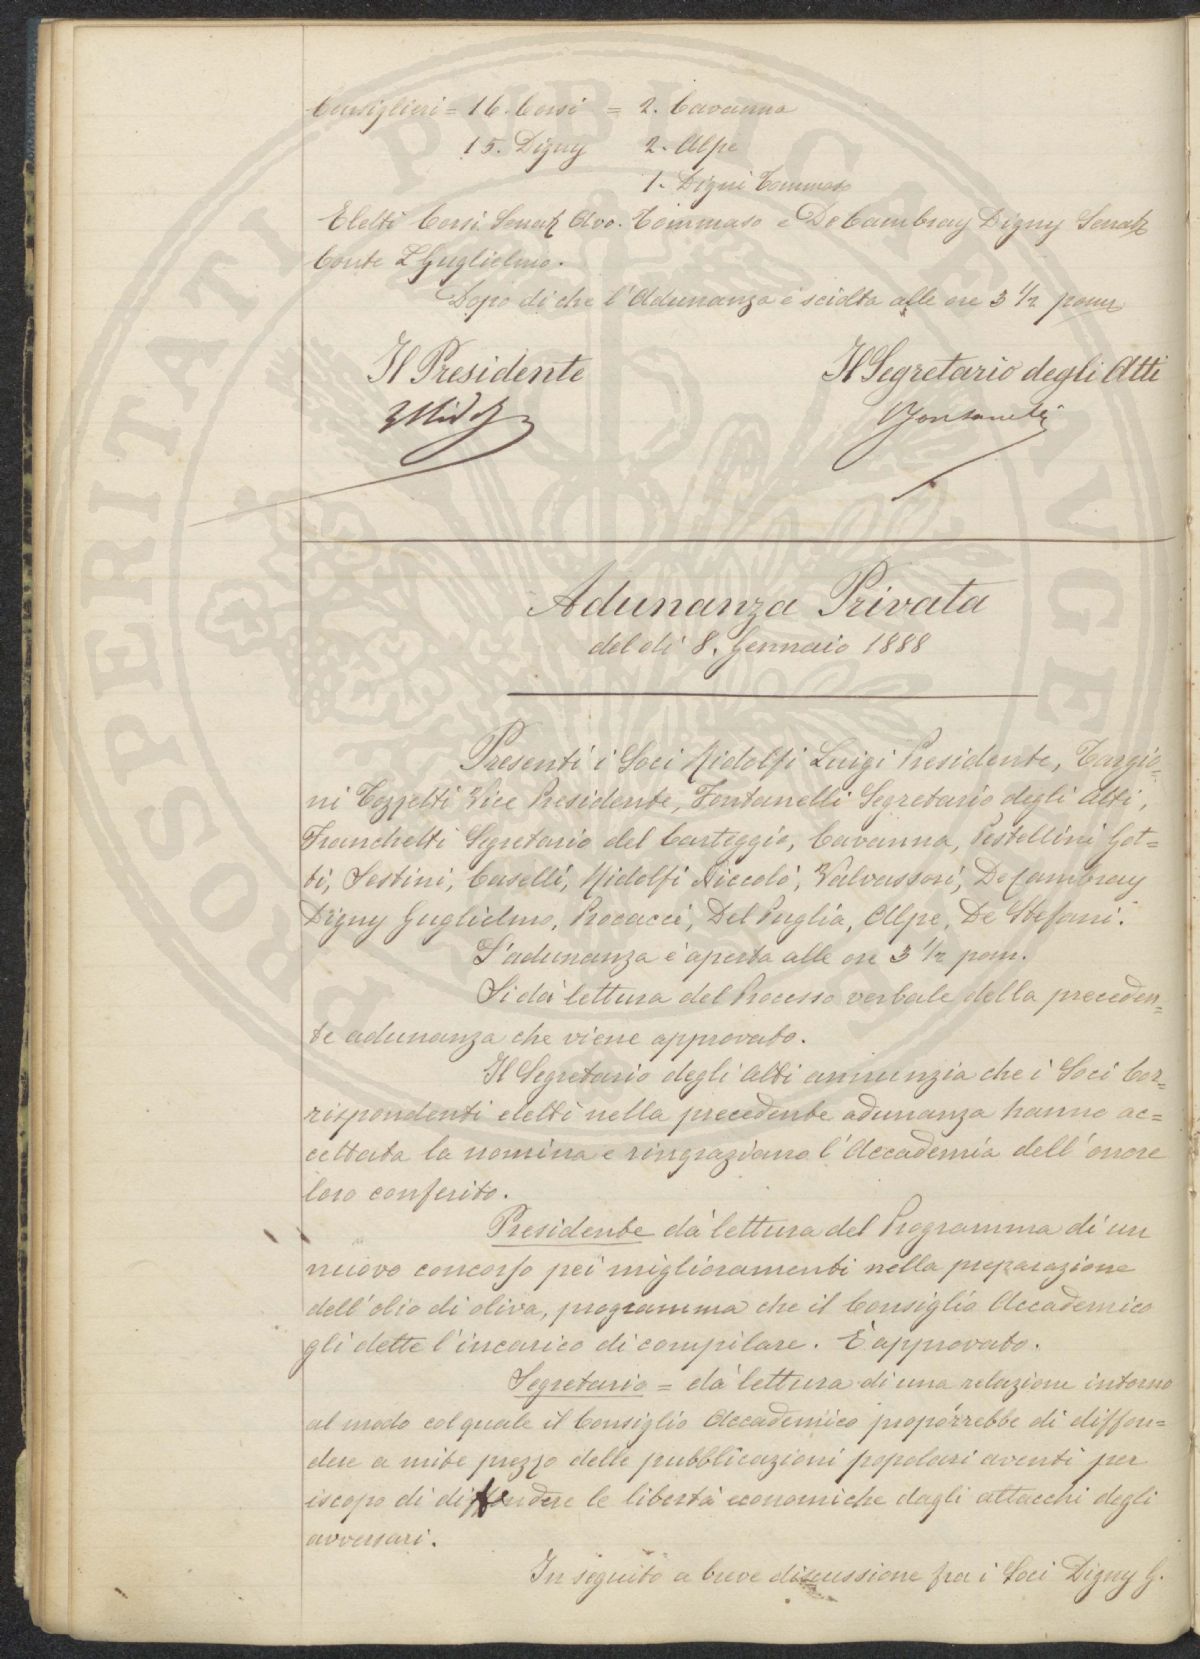 Consiglieri = 16. Corsi = 2. Cavanna
15. Digny 2. Alpe
1. Digni Tommaso
Eletti Corsi Senat. Avv. Tommaso e De Cambray Digny Senat.
Conte L Guglielmo.
Dopo di che l'Adunanza è sciolta alle ore 3 1/2 pom
Il Presidente Il Segretario degli Atti
LRidolfi Fontanelli
Adunanza Privata
del dì 8. Gennaio 1888
Presenti i Soci Ridolfi Luigi Presidente, Targio=
ni Tozzetti Vice Presidente, Fontanelli Segretario degli Atti,
Franchetti Segretario del Carteggio, Cavanna, Pestellini Got=
ti, Sestini, Caselli, Ridolfi Niccolò, Valvassori, De Cambray
Digny Guglielmo, Procacci, Del Puglia, Alpe, De Stefani.
L'adunanza è aperta alle ore 3 1/2 pom.
Si dà lettura del Processo verbale della preceden=
te adunanza che viene approvato.
Il Segretario degli Atti annunzia che i Soci Cor=
rispondenti eletti nella precedente adunanza hanno ac=
cettata la nomina e ringraziano l'Accademia dell'onore
loro conferito.
Presidente dà lettura del Programma di un
nuovo concorso pei miglioramenti nella preparazione
dell'olio di oliva, programma che il Consiglio Accademico
gli dette l'incarico di compilare. È approvato.
Segretario = dà lettura di una relazione intorno
al modo col quale il Consiglio Accademico proporrebbe di diffon=
dere a mite prezzo delle pubblicazioni popolari aventi per
iscopo di difendere le libertà economiche dagli attacchi degli
avversari.
In seguito a breve discussione fra i Soci Digny G.
PROSPERITATI PUBLICAE AVGENDAE